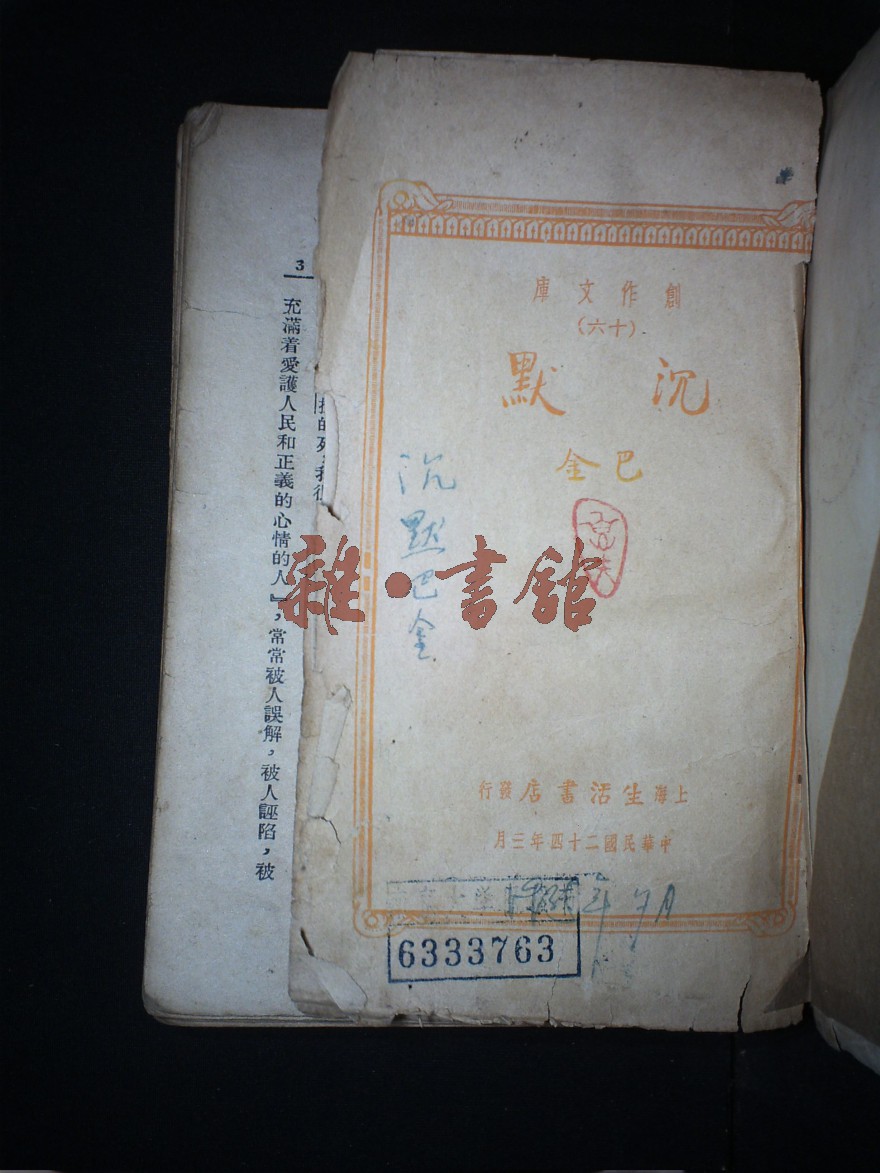 創作文庫
（十六）
沉默
巴金
沉默巴金
上海生活書店發行
中華民國二十四年三月
年 月
6333763
雜·書館
3
的死，我
充滿着愛護人民和正義的心情的人』，常常被人誤解，被人誣陷，被